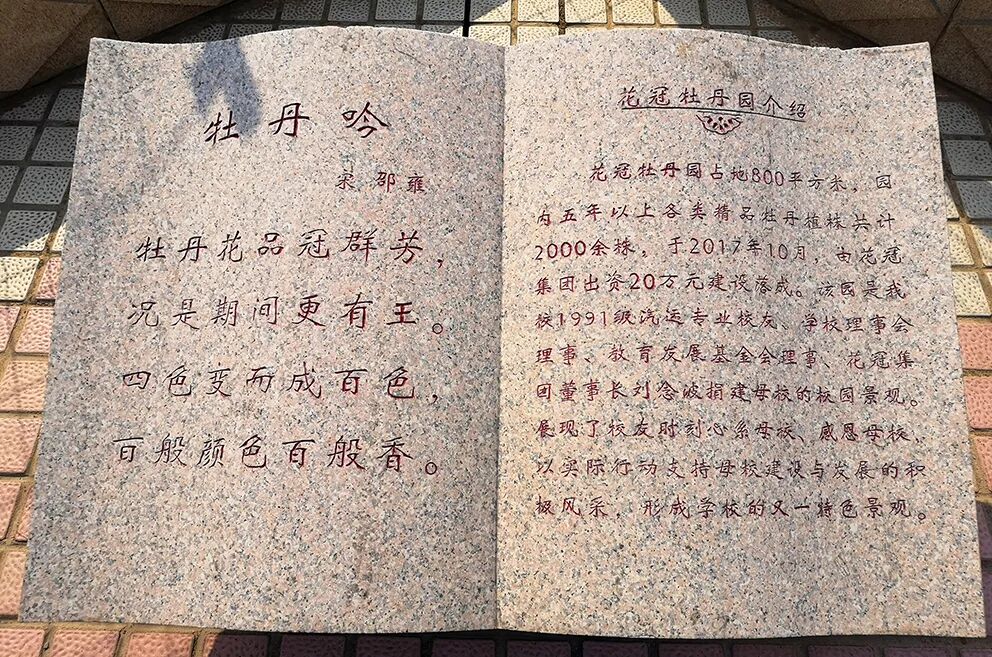 牡丹吟
宋 邵雍
牡丹花品冠群芳，
况是期间更有王。
四色变而成百色，
百般颜色百般香。
花冠牡丹园介绍
花冠牡丹园占地800平方米，园
内五年以上各类精品牡丹植株共计
2000余株，于2017年10月，由花冠
集团出资20万元建设落成。该园是我
校1991级汽运专业校友、学校理事会
理事、教育发展基金会理事、花冠集
团董事长刘念波捐建母校的校园景观。
展现了校友时刻心系母校、感恩母校、
以实际行动支持母校建设与发展的积
极风采，形成学校的又一特色景观。